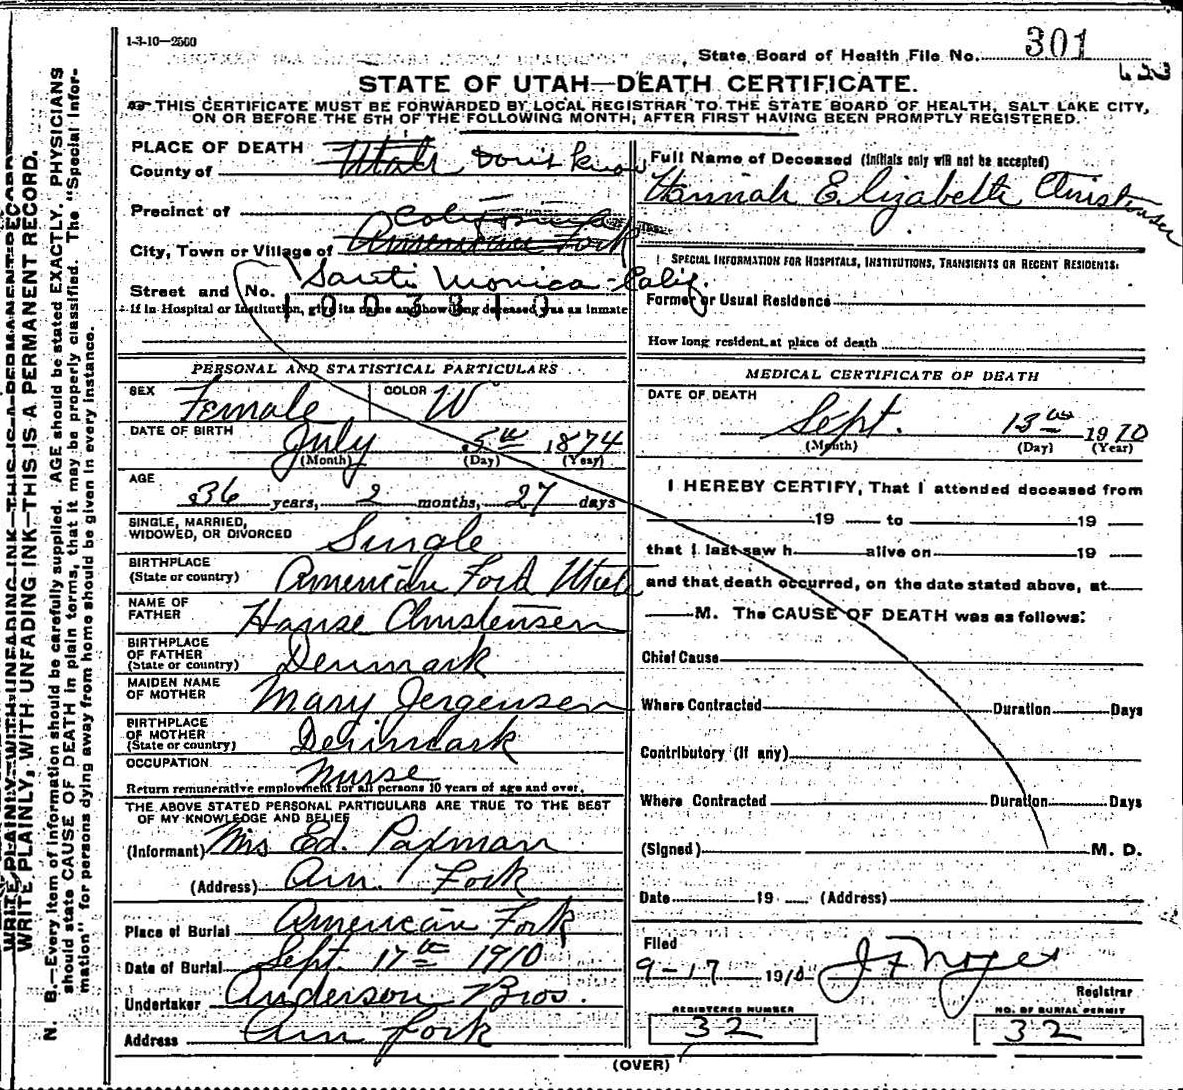 1-3-10—2500
State Board of Health File No. 301
STATE OF UTAH—DEATH CERTIFICATE.
THIS CERTIFICATE MUST BE FORWARDED BY LOCAL REGISTRAR TO THE STATE BOARD OF HEALTH, SALT LAKE CITY,
ON OR BEFORE THE 5TH OF THE FOLLOWING MONTH, AFTER FIRST HAVING BEEN PROMPTLY REGISTERED.
PLACE OF DEATH
County of Utah Don't know
Precinct of California
City, Town or Village of American Fork
Street and No. Santi Monica - Calif.
1003819
If in Hospital or Institution, give its name and how long deceased was an inmate
PERSONAL AND STATISTICAL PARTICULARS
SEX Female COLOR W
DATE OF BIRTH July 5th 1874
(Month) (Day) (Year)
AGE
36 years, 2 months, 27 days
SINGLE, MARRIED,
WIDOWED, OR DIVORCED Single
BIRTHPLACE
(State or country) American Fork Utah
NAME OF
FATHER Hanse Christensen
BIRTHPLACE
OF FATHER
(State or country) Denmark
MAIDEN NAME
OF MOTHER Mary Jergensen
BIRTHPLACE
OF MOTHER
(State or country) Denmark
OCCUPATION Nurse
Return remunerative employment for all persons 10 years of age and over.
THE ABOVE STATED PERSONAL PARTICULARS ARE TRUE TO THE BEST
OF MY KNOWLEDGE AND BELIEF
(Informant) Mrs Ed. Paxman
(Address) Am. Fork
Place of Burial American Fork
Date of Burial Sept. 17th 1910
Undertaker Anderson Bros.
Address Am Fork
Full Name of Deceased (Initials only will not be accepted)
Hannah Elizabeth Christensen
SPECIAL INFORMATION FOR HOSPITALS, INSTITUTIONS, TRANSIENTS OR RECENT RESIDENTS:
Former or Usual Residence
How long resident at place of death
MEDICAL CERTIFICATE OF DEATH
DATE OF DEATH
Sept. 13th 1910
(Month) (Day) (Year)
I HEREBY CERTIFY, That I attended deceased from
19 to 19
that I last saw h alive on 19
and that death occurred, on the date stated above, at
M. The CAUSE OF DEATH was as follows:
Chief Cause
Where Contracted Duration Days
Contributory (if any)
Where Contracted Duration Days
(Signed) M. D.
Date 19 (Address)
Filed
9-17 1910 J F Noyes
Registrar
REGISTERED NUMBER
32
NO. OF BURIAL PERMIT
32
(OVER)
WRITE PLAINLY, WITH UNFADING INK—THIS IS A PERMANENT RECORD.
N. B.—Every item of information should be carefully supplied. AGE should be stated EXACTLY. PHYSICIANS
should state CAUSE OF DEATH in plain terms, that it may be properly classified. The "Special Infor-
mation" for persons dying away from home should be given in every instance.